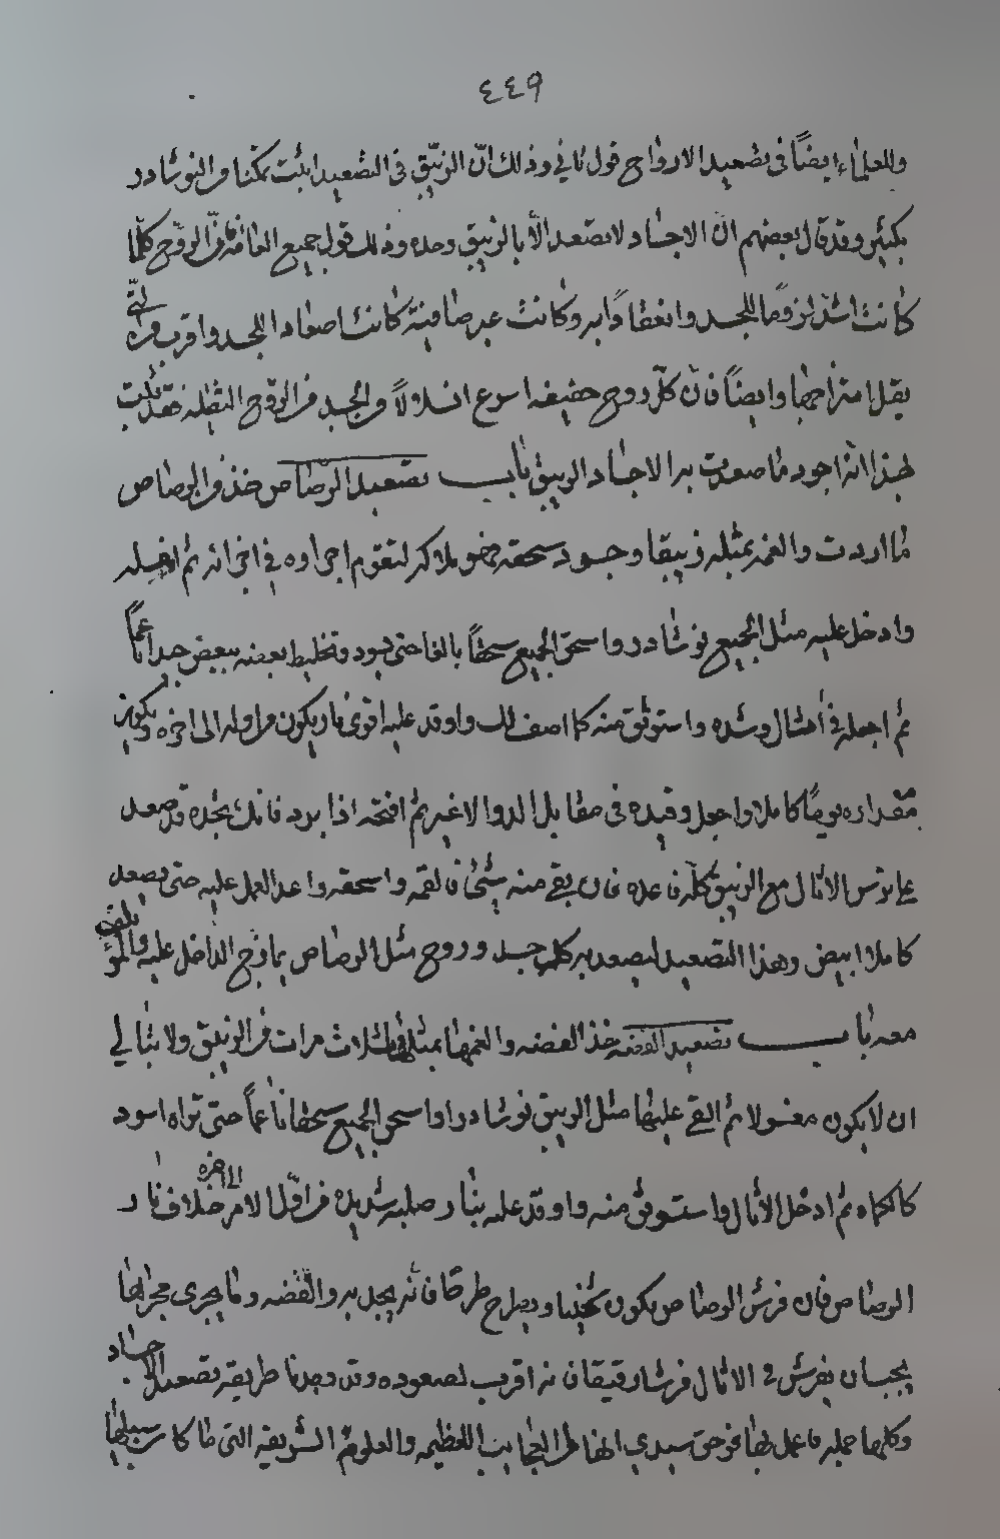 ٤٤٩
وللعلماء ايضاً فى تصعيد الارواح قول ثانى وذلك انّ الزئبق فى التصعيد اثبت تمكنا من النوشادر
بكثير وقد قال بعضهم ان الاجساد لا تصعد الّا بالزيبق وحده وذلك قول جميع العامة فانّ الروّح كلّما
كانت اشدّ لزوما للجسد وانعقاداً به وكانت غير ضامنة كانت اصعاد اللجسد واقرب من التى
يقل امتزاجها وايضاً فان كلّ روح خفيفه اسرع انسلالاً من الجسد من الروّح الثقيله فقد ثبت
لهذا انه اجود ما صعدت به الاجساد الزيبق باب تصعيد الرّصاص خذ من الرصاص
ما اردت والغمه بمثله زيبقا وجود سحقه فهو ملاكه لتقوم اجزاوه فى اخراته ثم اغسله
وادخل عليه مثل الجميع نوشادر واسحق الجميع سحقاً بالغا حتى يسود وتخليط بعضه ببعض جدا ناعماً
ثم اجعله فى أمثال وشده واستوثق منه كما اصف لك واوقد عليه اقوى نار يكون من اوله الى اخره ويكون
مقداره يومًا كاملا واجعل وقيده فى مقابل الدوا لا غير ثم افتحه اذا برد فانك تجده قد صعد
على ترس الاثال مع الزيبق كلّه فاعده فان بقى منه شئ فالغمه واسحقه واعد العمل عليه حتى يصعد
كاملا ابيض وهذا التصعيد ليصعد به كل جسد وروح مثل الرصاص يمازج الداخل عليه والملقى
معه باب تصعيد الفضه خذ الفضه والغمها بمثلها ثلاث مرات من الزيبق ولا تبالي
ان لا يكون مغسولا ثم القى عليها مثل الزيبق نوشادرا واسحق الجميع سحقا ناعماً حتى تراه اسود
كالحماه ثم ادخل الأثال واستوثق منه واوقد عليه بنار صلبه شديده من اوّل الامر الى اخره خلاف نار
الرصاص فان فرش الرصاص يكون ثخينا ويطرح طرحًا فانّه يجد به والفضه وما يجرى مجراها
يجب ان يفرش فى الاثال فرشا رقيقا فانه اقرب لصعوده وقد وجدنا طريقه تصعيد الاجساد
وكلها جمله فاعمل بها فوحق سيدي انها من العجايب العظيمه والعلوم الشريفه التى ما كان سبيلها